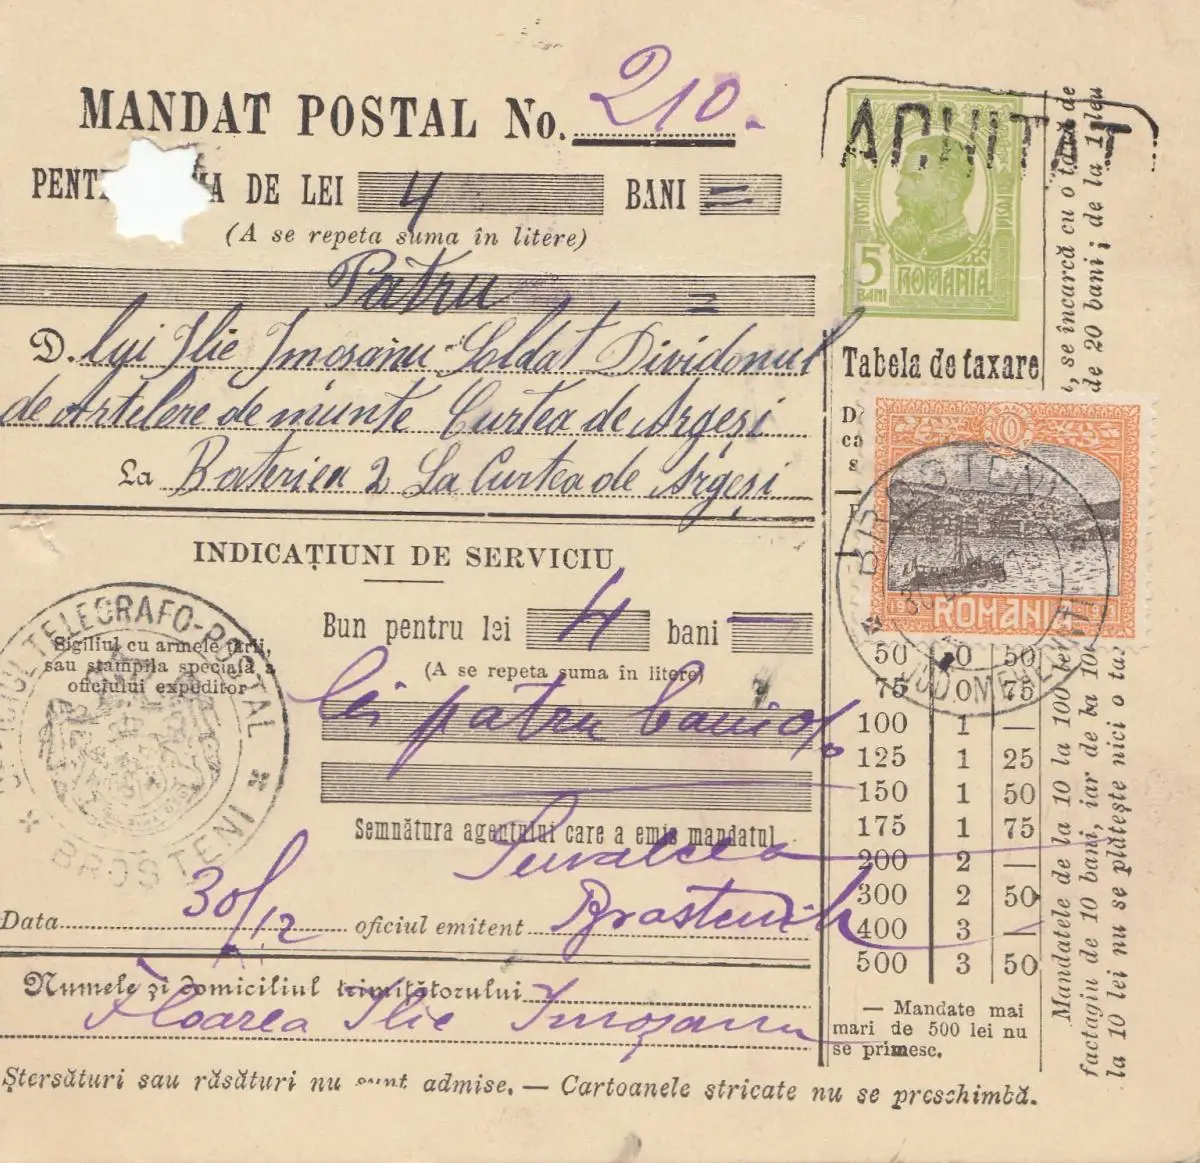 MANDAT POSTAL No. 210.
ACHITAT
PENTRU SUMA DE LEI 4 BANI =
(A se repeta suma în litere)
Patru =
D. lui Ilie Imoșanu Soldat Dividonul
de Artelere de munte Curtea de Argeși
La Bateriea 2 La Curtea de Argeși
INDICAȚIUNI DE SERVICIU
Bun pentru lei 4 bani —
(A se repeta suma în litere)
lei patru bani 0/0
Semnătura agentului care a emis mandatul
Data 30/12 oficiul emitent Brosteni
Numele și domiciliul trimițătorului
Floarea Ilie Imoșanu
Ștersături sau răsături nu sunt admise. — Cartoanele stricate nu se preschimbă.
Sigiliul cu armele țării,
sau stampila specială a
oficiului expeditor
OFICIUL TELEGRAFO-POSTAL
BROȘTENI
POSTA POSTA
5
BANI
ROMANIA
Tabela de taxare
10 BANI
1878 ROMANIA 1913
BROSTENI
30 DEC 913
JUD. MEHEDINTI
50 0 50
75 0 75
100 1 —
125 1 25
150 1 50
175 1 75
200 2 —
300 2 50
400 3 —
500 3 50
— Mandate mai
mari de 500 lei nu
se primesc.
Mandatele de la 10 la 100 lei, se încarcă cu o taxă de
factagiu de 10 bani, iar de la 100 de 20 bani; de la 1 leu
la 10 lei nu se plătește nici o taxă